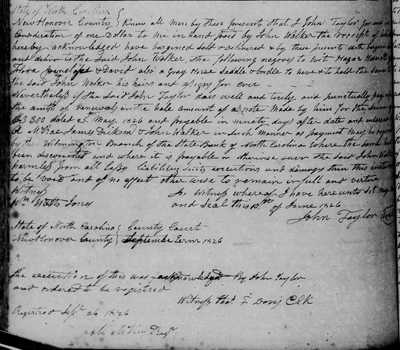 State of North Carolina
New Hanover County } Know all men by these presents that I John Taylor for and in
Consideration of one Dollar to me in hand paid by John Walker the receipt of which is
hereby acknowledged have bargained sold & delivered & by these presents doth bargain sell
and deliver to the said John Walker the following negroes to wit Hagar Hannah
Flora Penelope & David also a Gray Horse Saddle & bridle to have & to hold the same to
the said John Walker his heirs and assigns for ever
Nevertheless if the said John Taylor shall well and truly and punctually pay
the amount of renewal on the hole amount of a note made by him for the sum of
$3500 dated 5th May 1826 and payable in ninety days after date and indorsed
McRae James Dickson & John Walker in such manner as payment may be required
by the Wilmington Branch of the State Bank of North Carolina where the same has
been discounted and where it is payable or otherwise save the said John Walker
harmless from all Loss liability suits executions and damages then this instrument
to be void and of no effect other wise to remain in full and virtue
Witness In Witness whereof I have here unto set my
Wm Watts Jones and Seal this of June 1826
John Taylor
State of North Carolina } County Court
New Hanover County } September Term 1826
The execution of this was acknowledged by John Taylor
and ordered to be registered
Witness Thos F Davis Clk
Registered Sept 26 1826